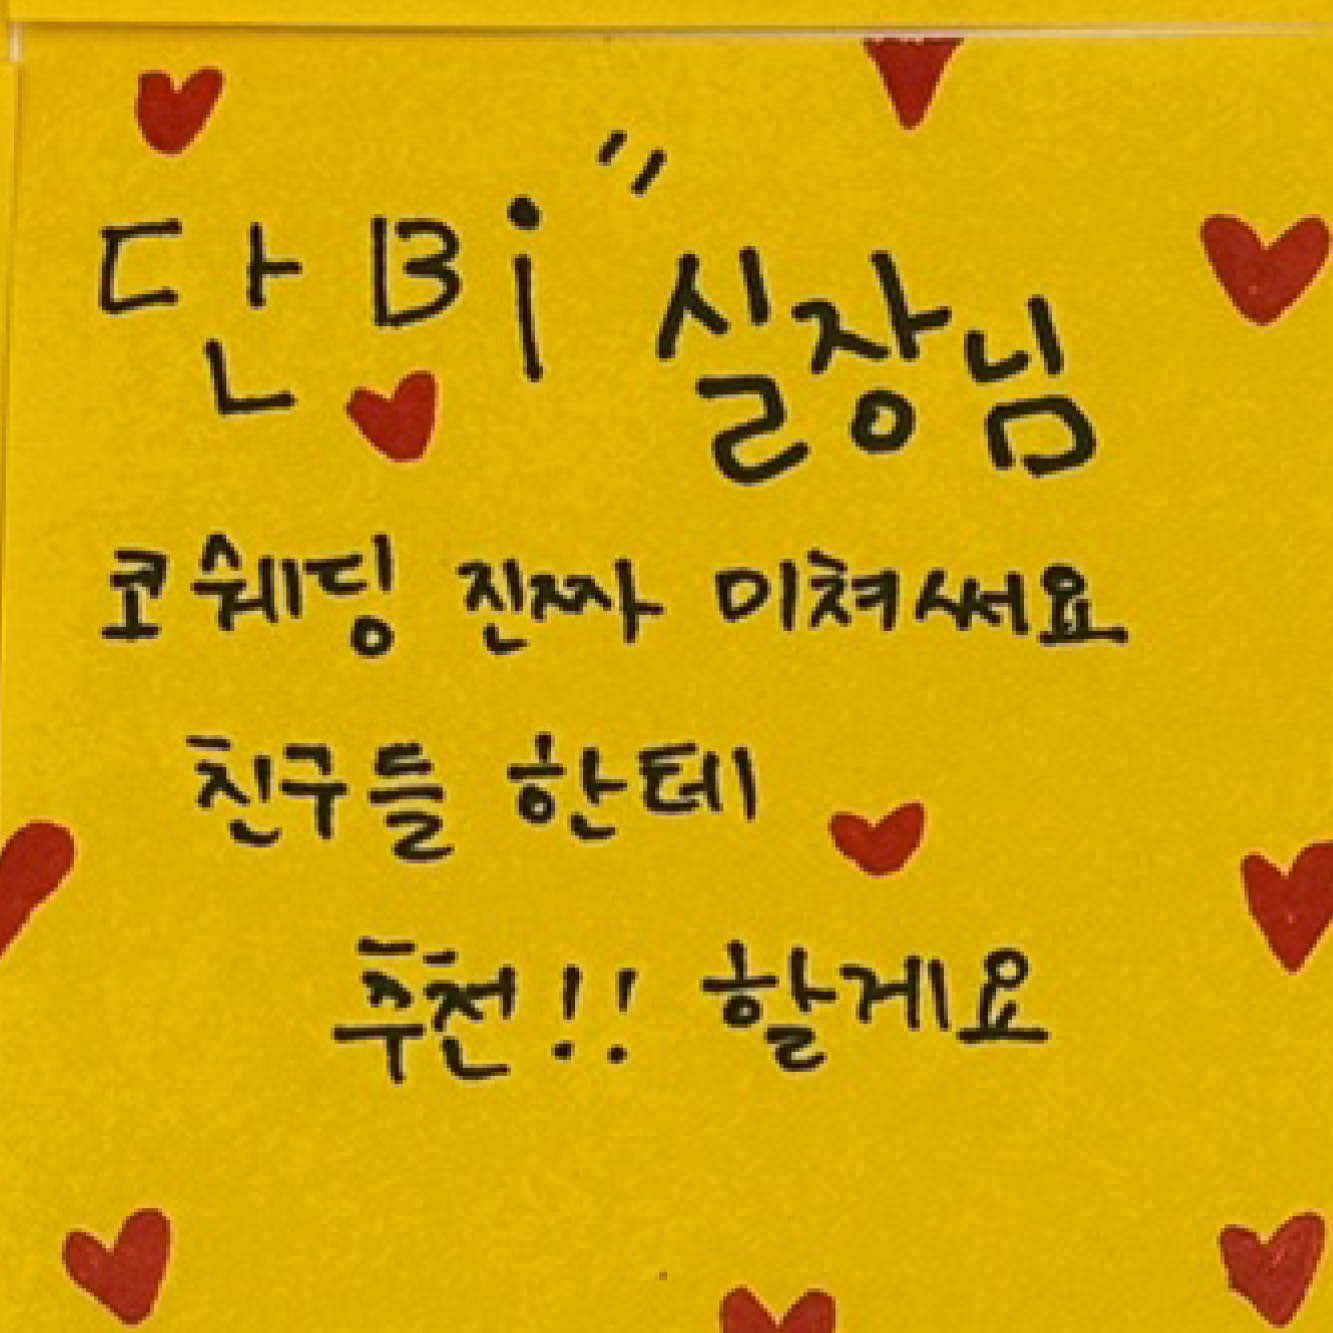 단Bi 실장님
코쉐딩 진짜 미쳐써요
친구들 한테
추천!! 할게요